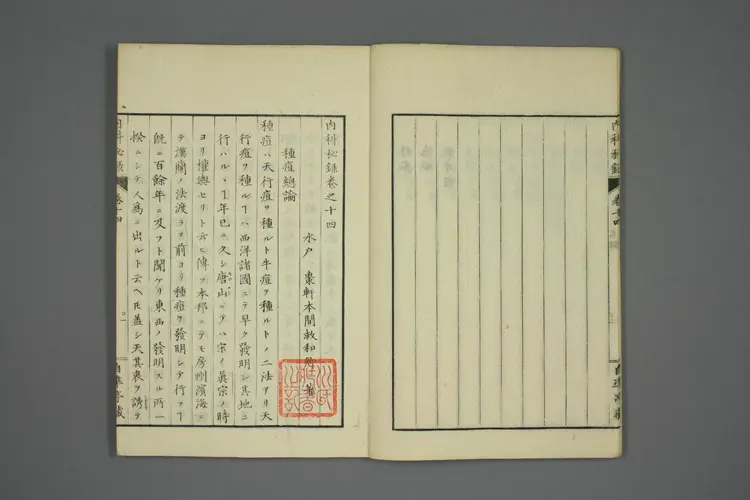 内科秘録
卷十四
自準亭藏
内科秘録卷之十四
水户 棗軒本間救和卿 著
種痘總論
種痘ハ天行痘ヲ種ルト牛痘ヲ種ルトノ二法アリ天
行痘ヲ種ルヿハ西洋諸國ニテ早ク發明シ其地ニ
行ハルヽヿ年已ニ久シ唐山ニテハ宋ノ眞宗ノ時
ヨリ權輿セリト云ヒ傳フ本邦ニテモ房州濱海ニ
テ漢蘭ノ法渡ラヌ前ヨリ種痘ヲ發明シテ行フヿ
既ニ百餘年ニ及フト聞ケリ東西ノ發明スル所一
揆ニシテ人爲ニ出ルト云ヘㇳモ蓋シ天其衷ヲ誘テ
内科秘録
卷十四
一
自準亭藏